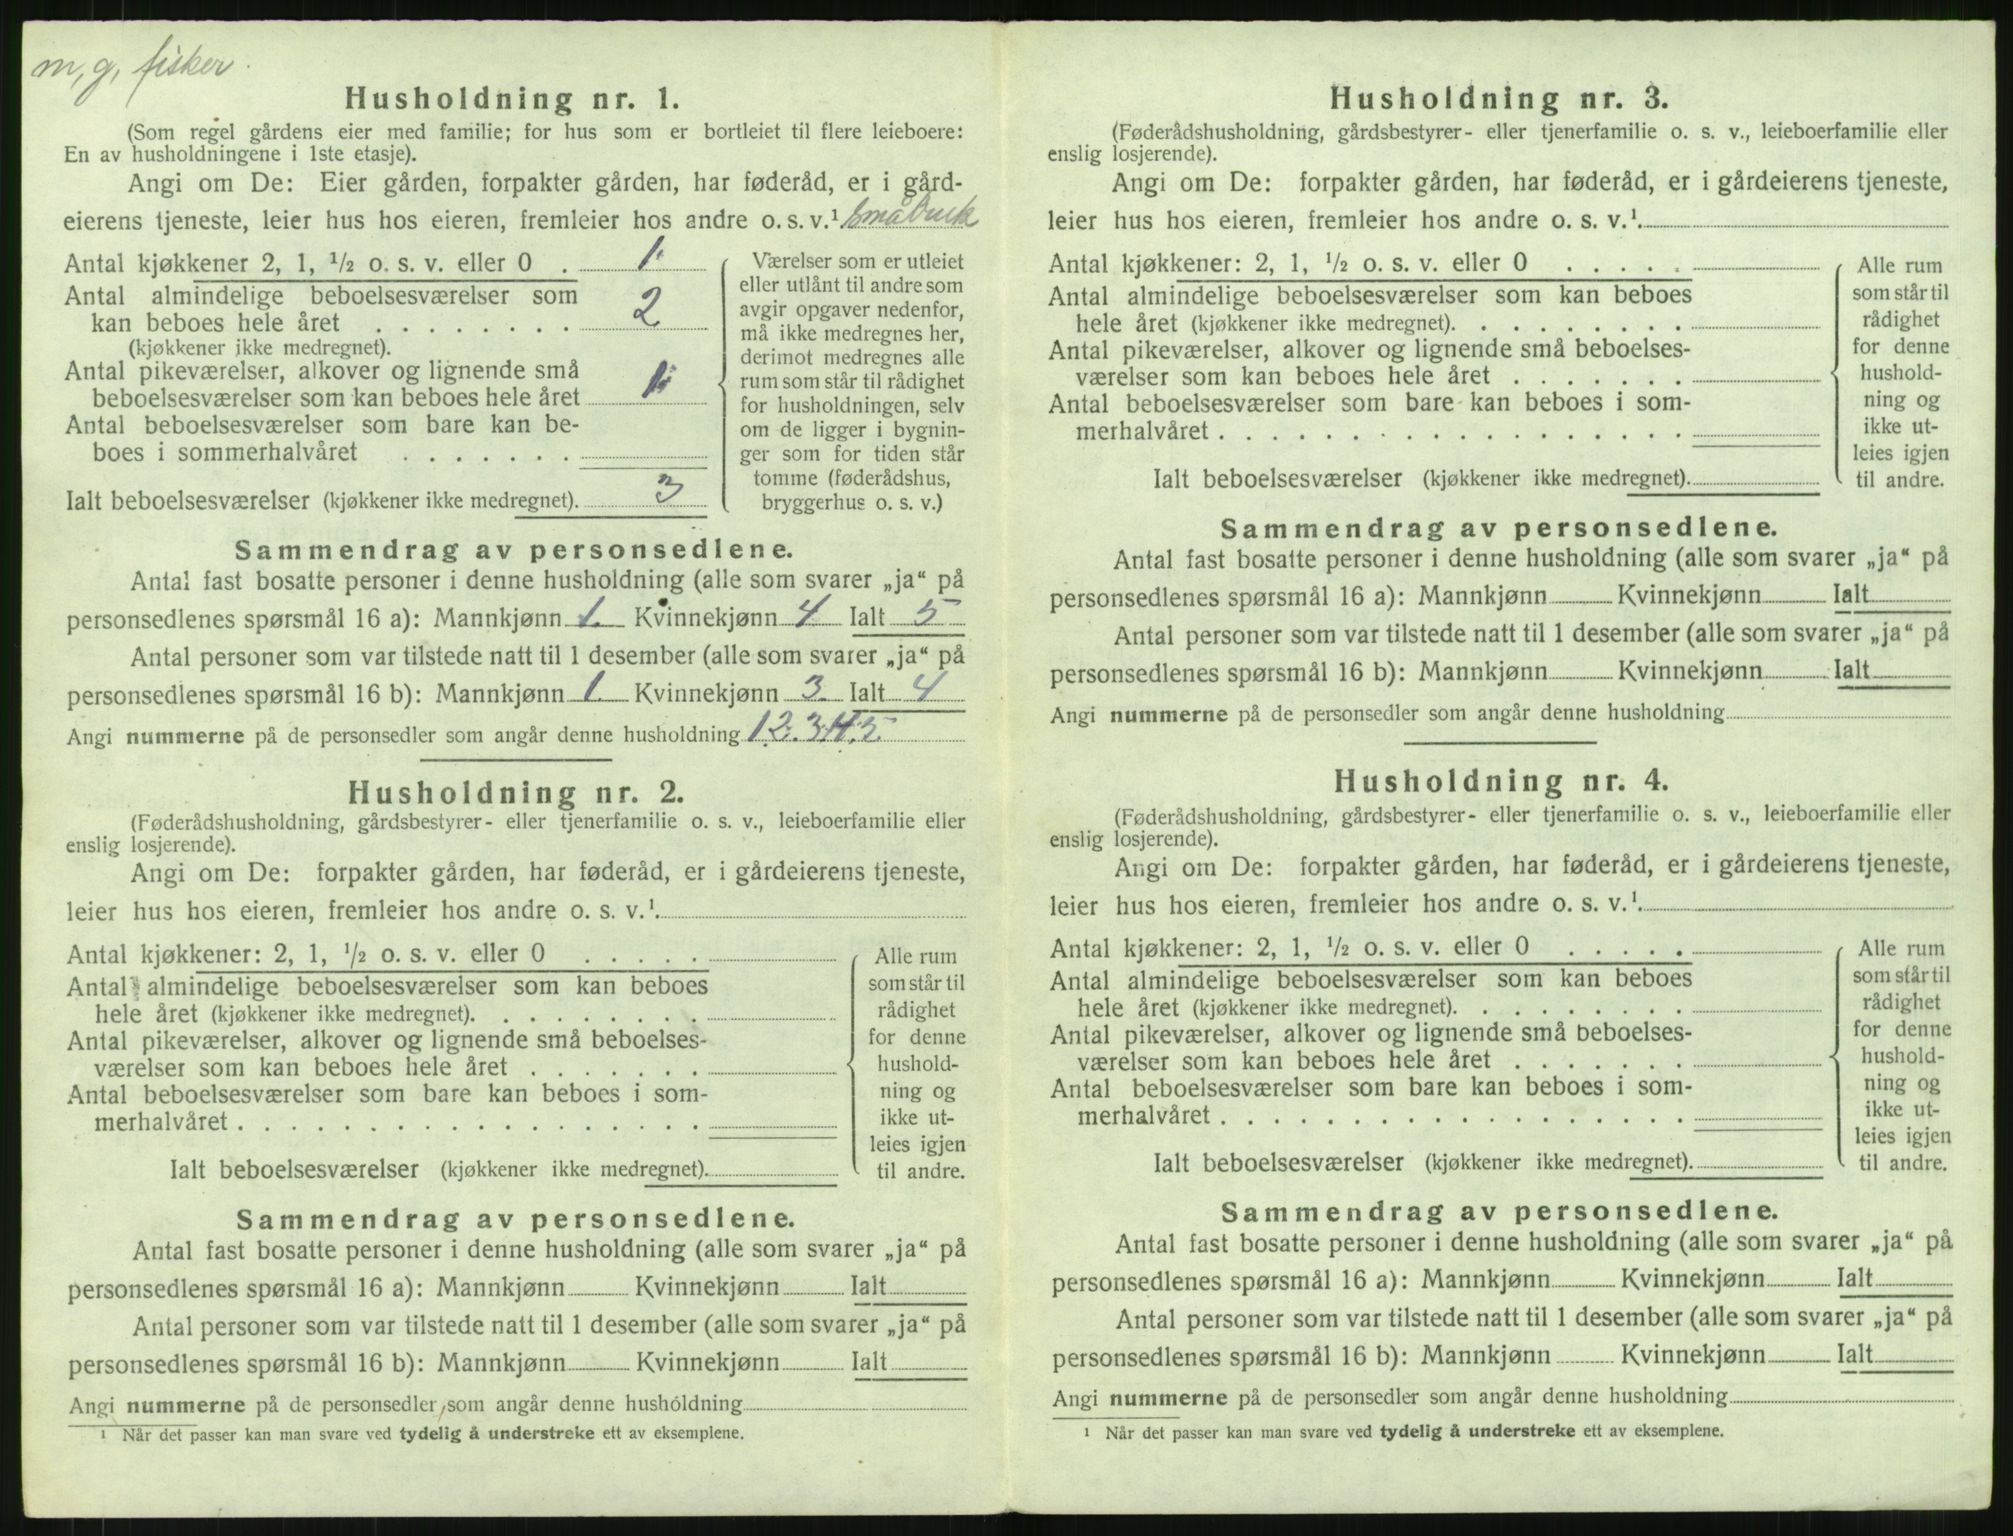 m, g, fisker.
Husholdning nr. 1.
(Som regel gårdens eier med familie; for hus som er bortleiet til flere leieboere:
En av husholdningene i 1ste etasje).
Angi om De: Eier gården, forpakter gården, har føderåd, er i gård-
eierens tjeneste, leier hus hos eieren, fremleier hos andre o. s. v.¹ Småbruk
Antal kjøkkener 2, 1, ½ o. s. v. eller 0 . 1.
Antal almindelige beboelsesværelser som
kan beboes hele året . . . . . . . . 2
(kjøkkener ikke medregnet).
Antal pikeværelser, alkover og lignende små
beboelsesværelser som kan beboes hele året 1.
Antal beboelsesværelser som bare kan be-
boes i sommerhalvåret . . . . . . .
Ialt beboelsesværelser (kjøkkener ikke medregnet). 3
Værelser som er utleiet
eller utlånt til andre som
avgir opgaver nedenfor,
må ikke medregnes her,
derimot medregnes alle
rum som står til rådighet
for husholdningen, selv
om de ligger i bygnin-
ger som for tiden står
tomme (føderådshus,
bryggerhus o. s. v.)
Sammendrag av personsedlene.
Antal fast bosatte personer i denne husholdning (alle som svarer „ja“ på
personsedlenes spørsmål 16 a): Mannkjønn 1. Kvinnekjønn 4 Ialt 5
Antal personer som var tilstede natt til 1 desember (alle som svarer „ja“ på
personsedlenes spørsmål 16 b): Mannkjønn 1. Kvinnekjønn 3 Ialt 4
Angi nummerne på de personsedler som angår denne husholdning 1.2.3.4.5.
Husholdning nr. 2.
(Føderådshusholdning, gårdsbestyrer- eller tjenerfamilie o. s. v., leieboerfamilie eller
enslig losjerende).
Angi om De: forpakter gården, har føderåd, er i gårdeierens tjeneste,
leier hus hos eieren, fremleier hos andre o. s. v.¹.
Antal kjøkkener: 2, 1, ½ o. s. v. eller 0 . . . . .
Antal almindelige beboelsesværelser som kan beboes
hele året (kjøkkener ikke medregnet). . . . . . . . .
Antal pikeværelser, alkover og lignende små beboelses-
værelser som kan beboes hele året . . . . . . .
Antal beboelsesværelser som bare kan beboes i som-
merhalvåret . . . . . . . . . . . . . . . . . .
Ialt beboelsesværelser (kjøkkener ikke medregnet).
Alle rum
som står til
rådighet
for denne
hushold-
ning og
ikke ut-
leies igjen
til andre.
Sammendrag av personsedlene.
Antal fast bosatte personer i denne husholdning (alle som svarer „ja“ på
personsedlenes spørsmål 16 a): Mannkjønn Kvinnekjønn Ialt
Antal personer som var tilstede natt til 1 desember (alle som svarer „ja“ på
personsedlenes spørsmål 16 b): Mannkjønn Kvinnekjønn Ialt
Angi nummerne på de personsedler som angår denne husholdning
¹ Når det passer kan man svare ved tydelig å understreke ett av eksemplene.
Husholdning nr. 3.
(Føderådshusholdning, gårdsbestyrer- eller tjenerfamilie o. s. v., leieboerfamilie eller
enslig losjerende).
Angi om De: forpakter gården, har føderåd, er i gårdeierens tjeneste,
leier hus hos eieren, fremleier hos andre o. s. v.¹.
Antal kjøkkener: 2, 1, ½ o. s. v. eller 0 . . . . .
Antal almindelige beboelsesværelser som kan beboes
hele året (kjøkkener ikke medregnet). . . . . . . . .
Antal pikeværelser, alkover og lignende små beboelses-
værelser som kan beboes hele året . . . . . . .
Antal beboelsesværelser som bare kan beboes i som-
merhalvåret . . . . . . . . . . . . . . . . . .
Ialt beboelsesværelser (kjøkkener ikke medregnet).
Alle rum
som står til
rådighet
for denne
hushold-
ning og
ikke ut-
leies igjen
til andre.
Sammendrag av personsedlene.
Antal fast bosatte personer i denne husholdning (alle som svarer „ja“ på
personsedlenes spørsmål 16 a): Mannkjønn Kvinnekjønn Ialt
Antal personer som var tilstede natt til 1 desember (alle som svarer „ja“ på
personsedlenes spørsmål 16 b): Mannkjønn Kvinnekjønn Ialt
Angi nummerne på de personsedler som angår denne husholdning
Husholdning nr. 4.
(Føderådshusholdning, gårdsbestyrer- eller tjenerfamilie o. s. v., leieboerfamilie eller
enslig losjerende).
Angi om De: forpakter gården, har føderåd, er i gårdeierens tjeneste,
leier hus hos eieren, fremleier hos andre o. s. v.¹.
Antal kjøkkener: 2, 1, ½ o. s. v. eller 0 . . . . .
Antal almindelige beboelsesværelser som kan beboes
hele året (kjøkkener ikke medregnet). . . . . . . . .
Antal pikeværelser, alkover og lignende små beboelses-
værelser som kan beboes hele året . . . . . . .
Antal beboelsesværelser som bare kan beboes i som-
merhalvåret . . . . . . . . . . . . . . . . . .
Ialt beboelsesværelser (kjøkkener ikke medregnet).
Alle rum
som står til
rådighet
for denne
hushold-
ning og
ikke ut-
leies igjen
til andre.
Sammendrag av personsedlene.
Antal fast bosatte personer i denne husholdning (alle som svarer „ja“ på
personsedlenes spørsmål 16 a): Mannkjønn Kvinnekjønn Ialt
Antal personer som var tilstede natt til 1 desember (alle som svarer „ja“ på
personsedlenes spørsmål 16 b): Mannkjønn Kvinnekjønn Ialt
Angi nummerne på de personsedler som angår denne husholdning
¹ Når det passer kan man svare ved tydelig å understreke ett av eksemplene.